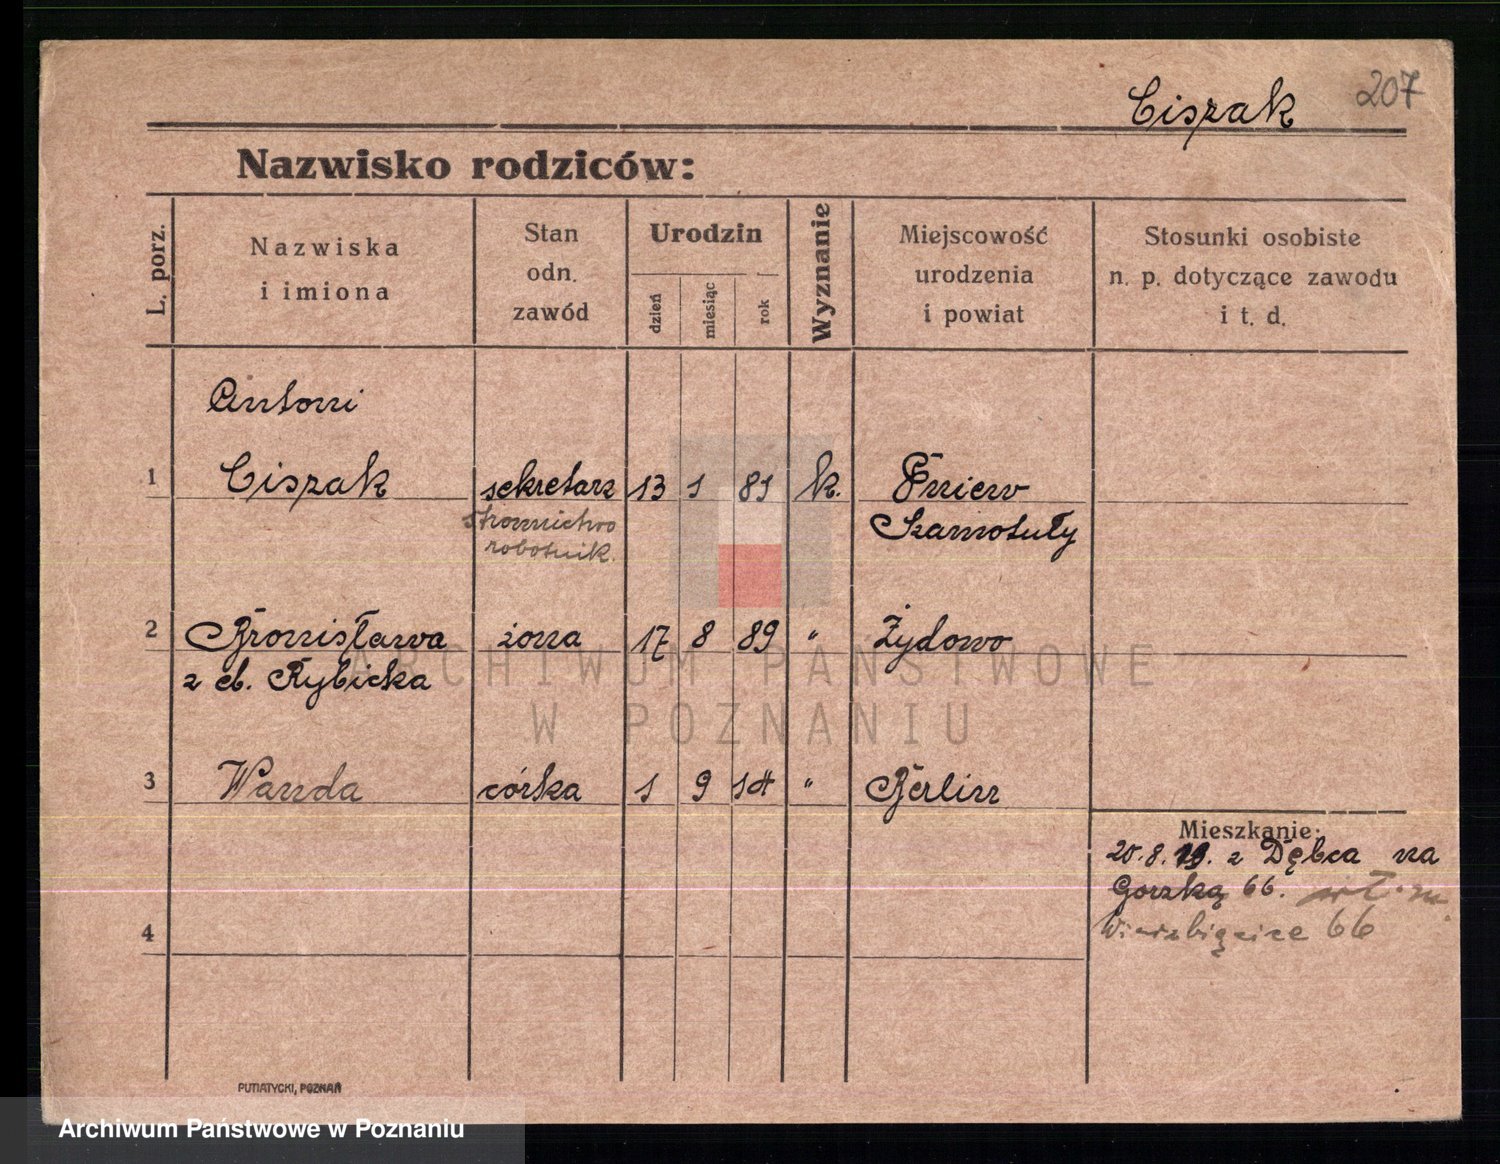 Ciszak 207
Nazwisko rodziców:
L. porz.
Nazwiska
i imiona
Stan
odn.
zawód
Urodzin
dzień
miesiąc
rok
Wyznanie
Miejscowość
urodzenia
i powiat
Stosunki osobiste
n. p. dotyczące zawodu
i t. d.
Antoni
1 Ciszak sekretarz 13 1 81 k. Pniew
Stronnictwo Szamotuły
robotnik.
2 Bronisława żona 17 8 89 " Żydowo
z d. Rybicka
ARCHIWUM PAŃSTWOWE
W POZNANIU
3 Wanda córka 1 9 14 " Berlin
Mieszkanie:
20.8.19. z Dębca na
Gorzką 66.
4 Wierzbięcice 66
PUTIATYCKI, POZNAŃ
Archiwum Państwowe w Poznaniu